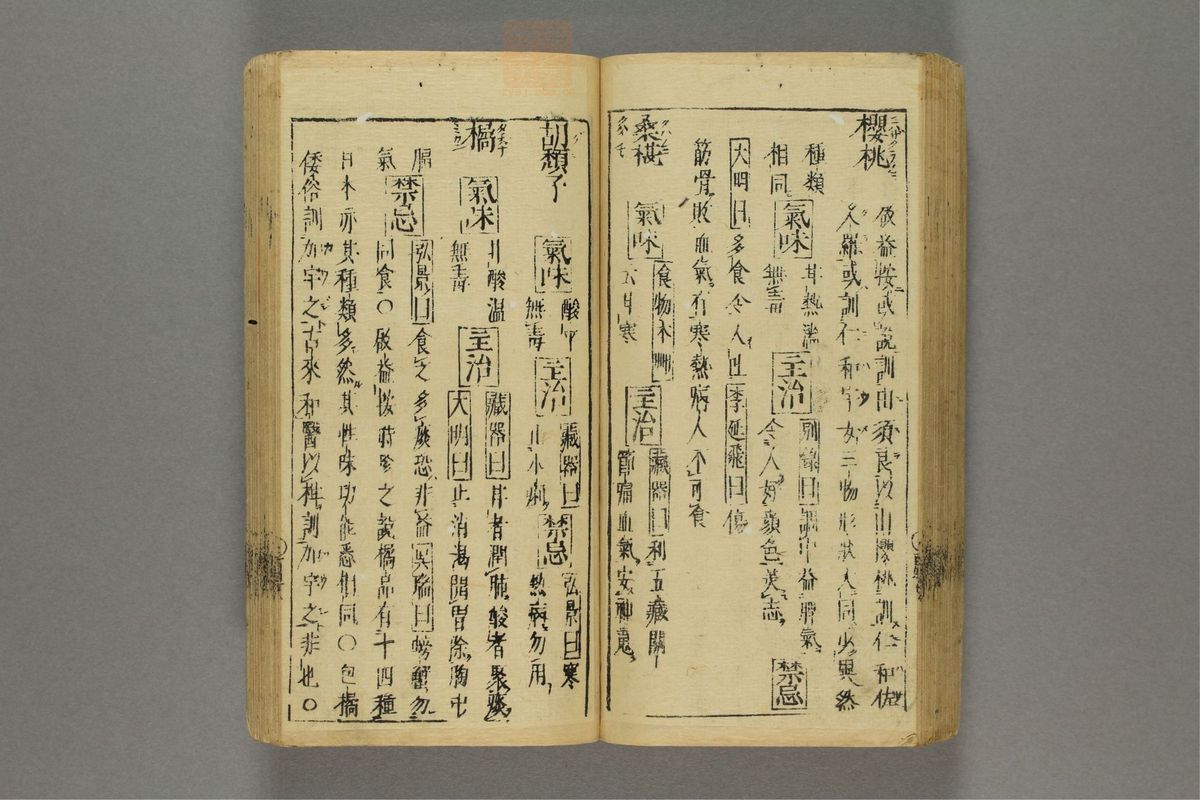 櫻桃
啟益按或說訓由須良以山櫻桃訓仁和佐
久羅或訓仁和宇女三物形狀大同少異然
種類
相同
氣味
甘熱濇
無毒
主治
別錄曰調中益脾氣
令人好顏色美志
禁忌
大明曰多食令人吐李廷飛曰傷
筋骨敗血氣有寒熱病人不可食
桑椹
氣味
食物本艸
云甘寒
主治
藏器曰利五藏關
節痛血氣安神魂
胡頹子
氣味
酸平
無毒
主治
藏器曰
止水痢
禁忌
弘景曰寒
熱病勿用
橘
氣味
甘酸温
無毒
主治
藏器曰甘者潤肺酸者聚痰
大明曰止消渴開胃除胸中
膈
氣
禁忌
弘景曰食之多痰恐非益吳瑞曰螃蟹勿
同食〇啟益按時珍之說橘品有十四種
日本亦其種類多然其性味功能悉相同〇包橘
倭俗訓加宇之古來和醫以柑訓加宇之非也〇